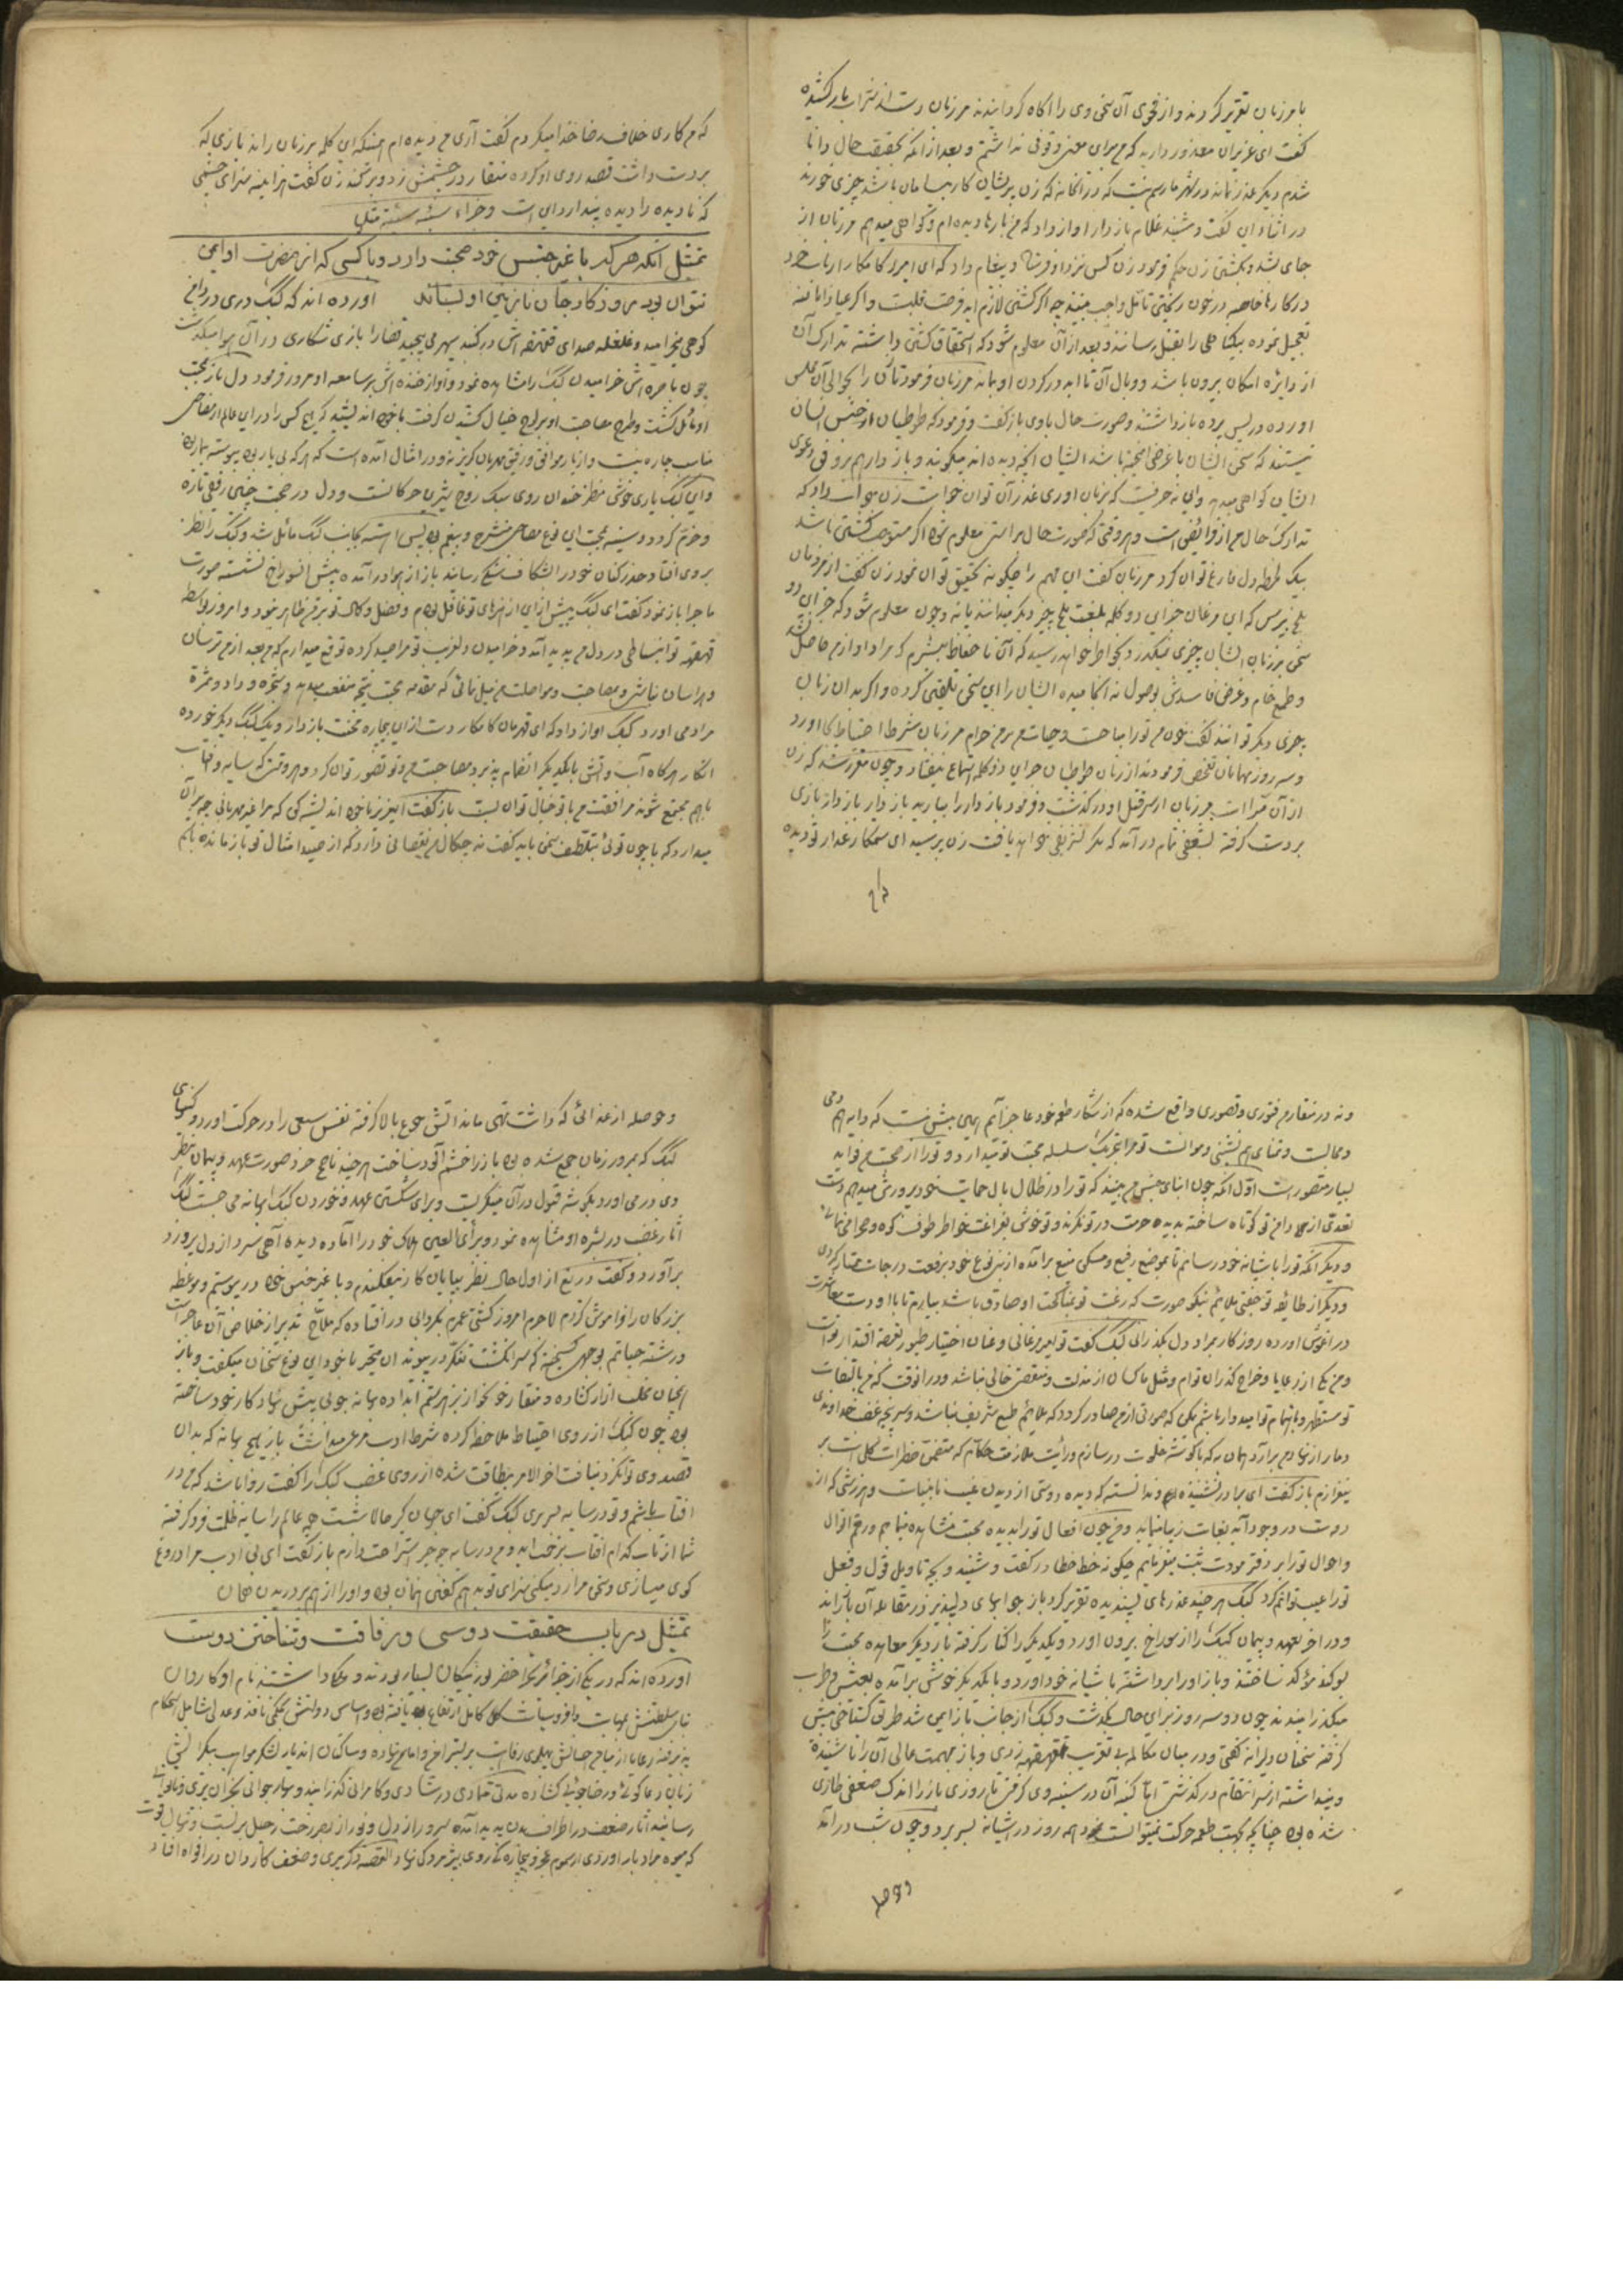 با مرزبان تقریر کردند و از فحوی آن سخن وی را آگاه گردانیدند مرزبان دست از شراب باز کشیده
گفت ای عزیزان معذور دارید که من برین معنی وقوفی نداشتم و بعد از آنکه تحقیقت حال دانا
شدم دیگر عذر نماند در شهر ما رسم نیست که در آنخانه که زن پریشان کار بسامان باشد چیزی خورند
در اثنای این گفت و شنید غلام بازدار آواز داد که من بارها دیده ام و گواهی میدهم مرزبان از
جای بشد و بکشتن زن حکم فرمود زن کس نزد او فرستاد و پیغام داد که ای امیر کامکار ارباب خرد
در کارها خاصه در خون ریختن تامل واجب بینند چه اگر کشتن لازم آید فرصت باقیست و اگر عیاذا بالله
تعجیل نموده بیگناهی را بقتل رسانند و بعد از آن معلوم شود که استحقاق کشتن نداشته تدارک آن
از دایره امکان بیرون باشد و وبال آن تا ابد در گردن او بماند مرزبان فرمود تا زن را بحوالی آن مجلس
آورده در پس پرده بازداشتند و صورت حال با وی باز گفت و فرمود که طوطیان از جنس انسان
نیستند که سخن ایشان با غرض آمیخته باشد ایشان آنچه دیده اند میگویند و بازدار هم بر وفق دعوی
ایشان گواهی میدهد و این نه حرفیست که بزبان آوری عذر آن توان خواست زن جواب داد که
تدارک حال من از فرائض است و هر وقتی که صورت حال براستی معلوم شود اگر مستوجب کشتن باشم
بیک لحظه دل فارغ توان کرد مرزبان گفت این مهم را چگونه تحقیق توان نمود زن گفت از مردمان
بلخ بپرس که این مرغان جز این دو کلمه بلغت بلخ چیز دیگر میدانند یا نه و چون معلوم شود که جز این دو
سخن بر زبان ایشان چیزی نمیگذرد بخاطر خواهد رسید که آن ناحفاظ بیشرم که مراد او از من حاصل نشد
و طمع خام و غرض فاسدش بوصول نه انجامیده ایشان را این سخن تلقین کرده و اگر بدان زبان
چیزی دیگر توانند گفت خون من تو را مباحست و حیات من بر من حرام مرزبان شرط احتیاط بجا آورد
و سه روز مهمانان تفحص فرمودند از زبان طوطیان جز این دو کلمه استماع نیفتاد و چون مقرر شد که زن
از آن مبراست مرزبان از سر قتل او در گذشت و فرمود بازدار را بیارید بازدار بازی
بر دست گرفته بشعفی تمام در آمد که مگر تشریفی خواهد یافت زن پرسید ای ستمکار غدار تو دیدی
که من کاری خلاف رضای خدا میکردم گفت آری من دیده ام همینکه این کلمه بر زبان راند بازی که
بر دست داشت قصد روی او کرده منقار در چشمش زد و بر کند زن گفت هر آینه سزای چشمی
که نادیده را دیده پندارد این است و جزاء سیئة سیئة مثلها
تمثیل آنکه هر که با غیر جنس خود صحبت دارد و با کسی که از مضرت او ایمن
نتوان بود مروزگار جان نازنین او بستاند آورده اند که کبک دری در دامن
کوهی میخرامید و غلغله صدای قهقهه اش در گنبد سپهر می پیچید قضا را بازی شکاری در آن هوا میگذشت
چون باصره اش خرامیدن کبک را مشاهده نمود و آواز خنده اش بر سامعه او مرور فرمود دل باز بصحبت
او مائل گشت و طرح مصاحبت او بر لوح خیال کشیدن گرفت با خود اندیشید که هیچ کس را در این عالم از مصاحبی
مناسب چاره نیست و از یار موافق و رفیق مهربان گزیر نه و در امثال آمده است که هر که بی یار بود پیوسته بیمار بود
و این کبک یاری خوش منظر خندان روی سبک روح شیرین حرکاتست و دل در صحبت چنین رفیق تازه
و خرم گردد و سینه بصحبت این نوع مصاحبی منشرح و بیغم بود پس آهسته بجانب کبک مائل شد و کبک را نظر
بر وی افتاد حذر کنان خود را بشکاف سنگی رسانید باز از هوا در آمده پیش آن سوراخ نشسته صورت
ماجرا باز نمود گفت ای کبک پیش از این از هنرهای تو غافل بودم و فضل و کمال تو بر من ظاهر نبود و امروز بواسطه
قهقهه تو انبساطی در دل من پدید آمد و خرامیدن دلفریب تو مرا صید کرده توقع میدارم که من بعد از من ترسان
و هراسان نباشی و بمصاحبت و مواصلت من میل نمائی که مقدمه محبت نتیجه منفعت میدهد و شجره وداد و ثمره
مراد می آورد کبک آواز داد که ای قهرمان کامکار دست از این بیچاره محنت باز دار و یک کبک دیگر خورده
انگار هرگاه آب و آتش با یکدیگر انضمام پذیرد مصاحبت من و تو تصور توان کرد و هر وقت که سایه و آفتاب
باهم مجتمع شوند مرافقت من با تو خیال توان بست باز گفت ای عزیز با خود اندیشه کن که مرا غیر مهربانی چه بر آن
میدارد که با چون توئی بتلطف سخن باید گفت نه چنگال من نقصانی دارد که از صید امثال تو باز مانده باشم
و نه در منقار من فتوری و قصوری واقع شده که از شکار طعمه خود عاجز آیم همین بیش نیست که داعیه هم دمی
و مجالست و تمنای همنشینی و موانست تو مرا بتحریک سلسله محبت تو میدارد و تو را از صحبت من فواید
بسیار متصورست اول آنکه چون ابنای جنس من بینند که تو را در ظلال بال حمایت خود پرورش میدهم دست
تعدی از دامن تو کوتاه ساخته بدیده حرمت در تو نگرند و تو خوش بفراغت خاطر طوف کوه و صحرا می نمائی
و دیگر آنکه تو را بآشیانه خود رسانم تا بموضع رفیع و مسکن منیع بر آمده از بنی نوع خود برفعت درجات ممتاز گردی
و دیگر از طائفه تو جفتی ملایم نیکو صورت که رغبت تو بمناکحت او صادق باشد بیارم تا با او دست معاشرت
در آغوش آورده روزگار بمراد دل بگذرانی کبک گفت تو امیر مرغانی و عنان اختیار طیور بقبضه اقتدار تو است
و من یکی از رعایا و خراج گذاران توام و مثل ما کسان از مذلت و منقصتی خالی نباشد و در آنوقت که من بالتفات
تو مستظهر و باهتمام تو امیدوار باشم ممکن که صورتی از من صادر گردد که ملائم طبع شریف نباشد و سرپنجه غضب خداوندی
دمار از نهاد من بر آرد همان به که با گوشه خلوت در سازم و رایت ملازمت حکام که متضمن خطرات کلی است بر
نیفرازم باز گفت ای برادر نشنیده و ندانسته که دیده دوستی از دیدن عیب نابیناست و هر زشتی که از
دوست در وجود آید بغایت زیبا نماید و من چون افعال تو را بدیده محبت مشاهده مینمایم و رقم اقوال
و احوال تو را بر دفتر مودت ثبت میفرمایم چگونه خط خطا در گفت و شنید و بچه تاویل قول و فعل
تو را عیب توانم کرد کبک هر چند عذرهای پسندیده تقریر کرد باز جوابهای دلپذیر در مقابله آن باز راند
و در آخر بعهد و پیمان کبک را از سوراخ بیرون آورد و یکدیگر را کنار گرفته بار دیگر معاهده محبت را
بسوگند مؤکد ساختند و باز او را برداشته بآشیانه خود آورد و با یکدیگر خوش بر آمده بعیش و طرب
میگذرانیدند چون دو سه روز بر این حال بگذشت و کبک از جانب باز ایمن شد طریق گستاخی پیش
گرفته سخنان دلیرانه گفتی و در میان مکالمه بی تقریب قهقهه زدی و باز بهمت عالی آن را ناشنیده
و پنداشته از سر انتقام در گذشتی اما کینه آن در سینه وی گرفتی تا روزی باز را اندک ضعفی طاری
شده بود چنانکه بجهت طعمه حرکت نمیتوانست نمود همه روز در آشیانه بسر برد و چون شب در آمد
و حوصله از غذائی که داشت تهی ماند آتش جوع بالا گرفته نفس سبعی را در حرکت آورد و کینهای
کبک که بمرور زمان جمع شده بود باز را خشم آلود ساخت هر چند ناصح خرد صورت عهد و پیمان بنظر
وی در می آورد بگوشه قبول در آن مینگریست و برای شکستن عهد و خوردن کبک بهانه می جست کبک
آثار غضب در بشره او مشاهده نمود و برأی العین هلاک خود را آماده دیده آهی سرد از دل پر درد
بر آورد و گفت دریغ از اول حال نظر بپایان کار نیفکندم و با غیر جنس خود در پیوستم و موعظه
بزرگان را فراموش کردم لاجرم امروز کشتی عمرم بگردابی در افتاده که ملاح تدبیر از خلاص آن عاجز است
و رشته حیاتم بوجهی گسیخته که سر انگشت تفکر در پیوند آن متحیر با خود این نوع سخنان میگفت و باز
همچنان مخلب آزار گشاده و منقار خونخوار از بزهر ستم آبداده بهانه جوئی پیش نهاد کار خود ساخته
بود چون کبک از روی احتیاط ملاحظه کرده شرط ادب مرعی میداشت باز هیچ بهانه که بدان
قصد وی توانکرد نیافت آخر الامر بیطاقت شده از روی غضب کبک را گفت روا باشد که من در
آفتاب باشم و تو در سایه بسر بری کبک گفت ای جهان گیر حالا شبست و همه عالم را سایه ظلمت فرو گرفته
شما از تاب کدام آفتاب بزحمت اند و من در سایه چه چیز استراحت دارم باز گفت ای بی ادب مرا دروغ
گوی میسازی و سخن مرا رد میکنی سزای تو بدهم گفتن همان بود و او را از هم بر دریدن همان
تمثیل در باب حقیقت دوستی و رفاقت و شناختن دوست
آورده اند که در یکی از جزائر بحر اخضر بوزینگان بسیار بودند و ملکی داشتند نام او کاردان
بنای سلطنتش بمهابت وافر و سیاست کامل ارتفاع یافته بود و اساس دولتش بحکمی نافذ و عدلی شامل استحکام
پذیرفته رعایا از میامن احسانش پهلوی رفاهیت بر بستر امن و امان نهاده و ساکنان آن دیار بشکر مواهب بیکرانش
زبان دعا گوئی و رضا جوئی گشاده مدتی متمادی در شادی و کامرانی گذرانید و بهار جوانی بخزان پیری و ناتوانی
رسانید آثار ضعف در اطراف بدن پدید آمده سرور از دل و نور از بصر رخت رحیل بر بست و نهال قوت
که میوه مراد بار آوردی از سموم عجز و بیچارگی روی بپژمردگی نهاد القصه ذکر پیری و ضعف کاردان در افواه افتاد